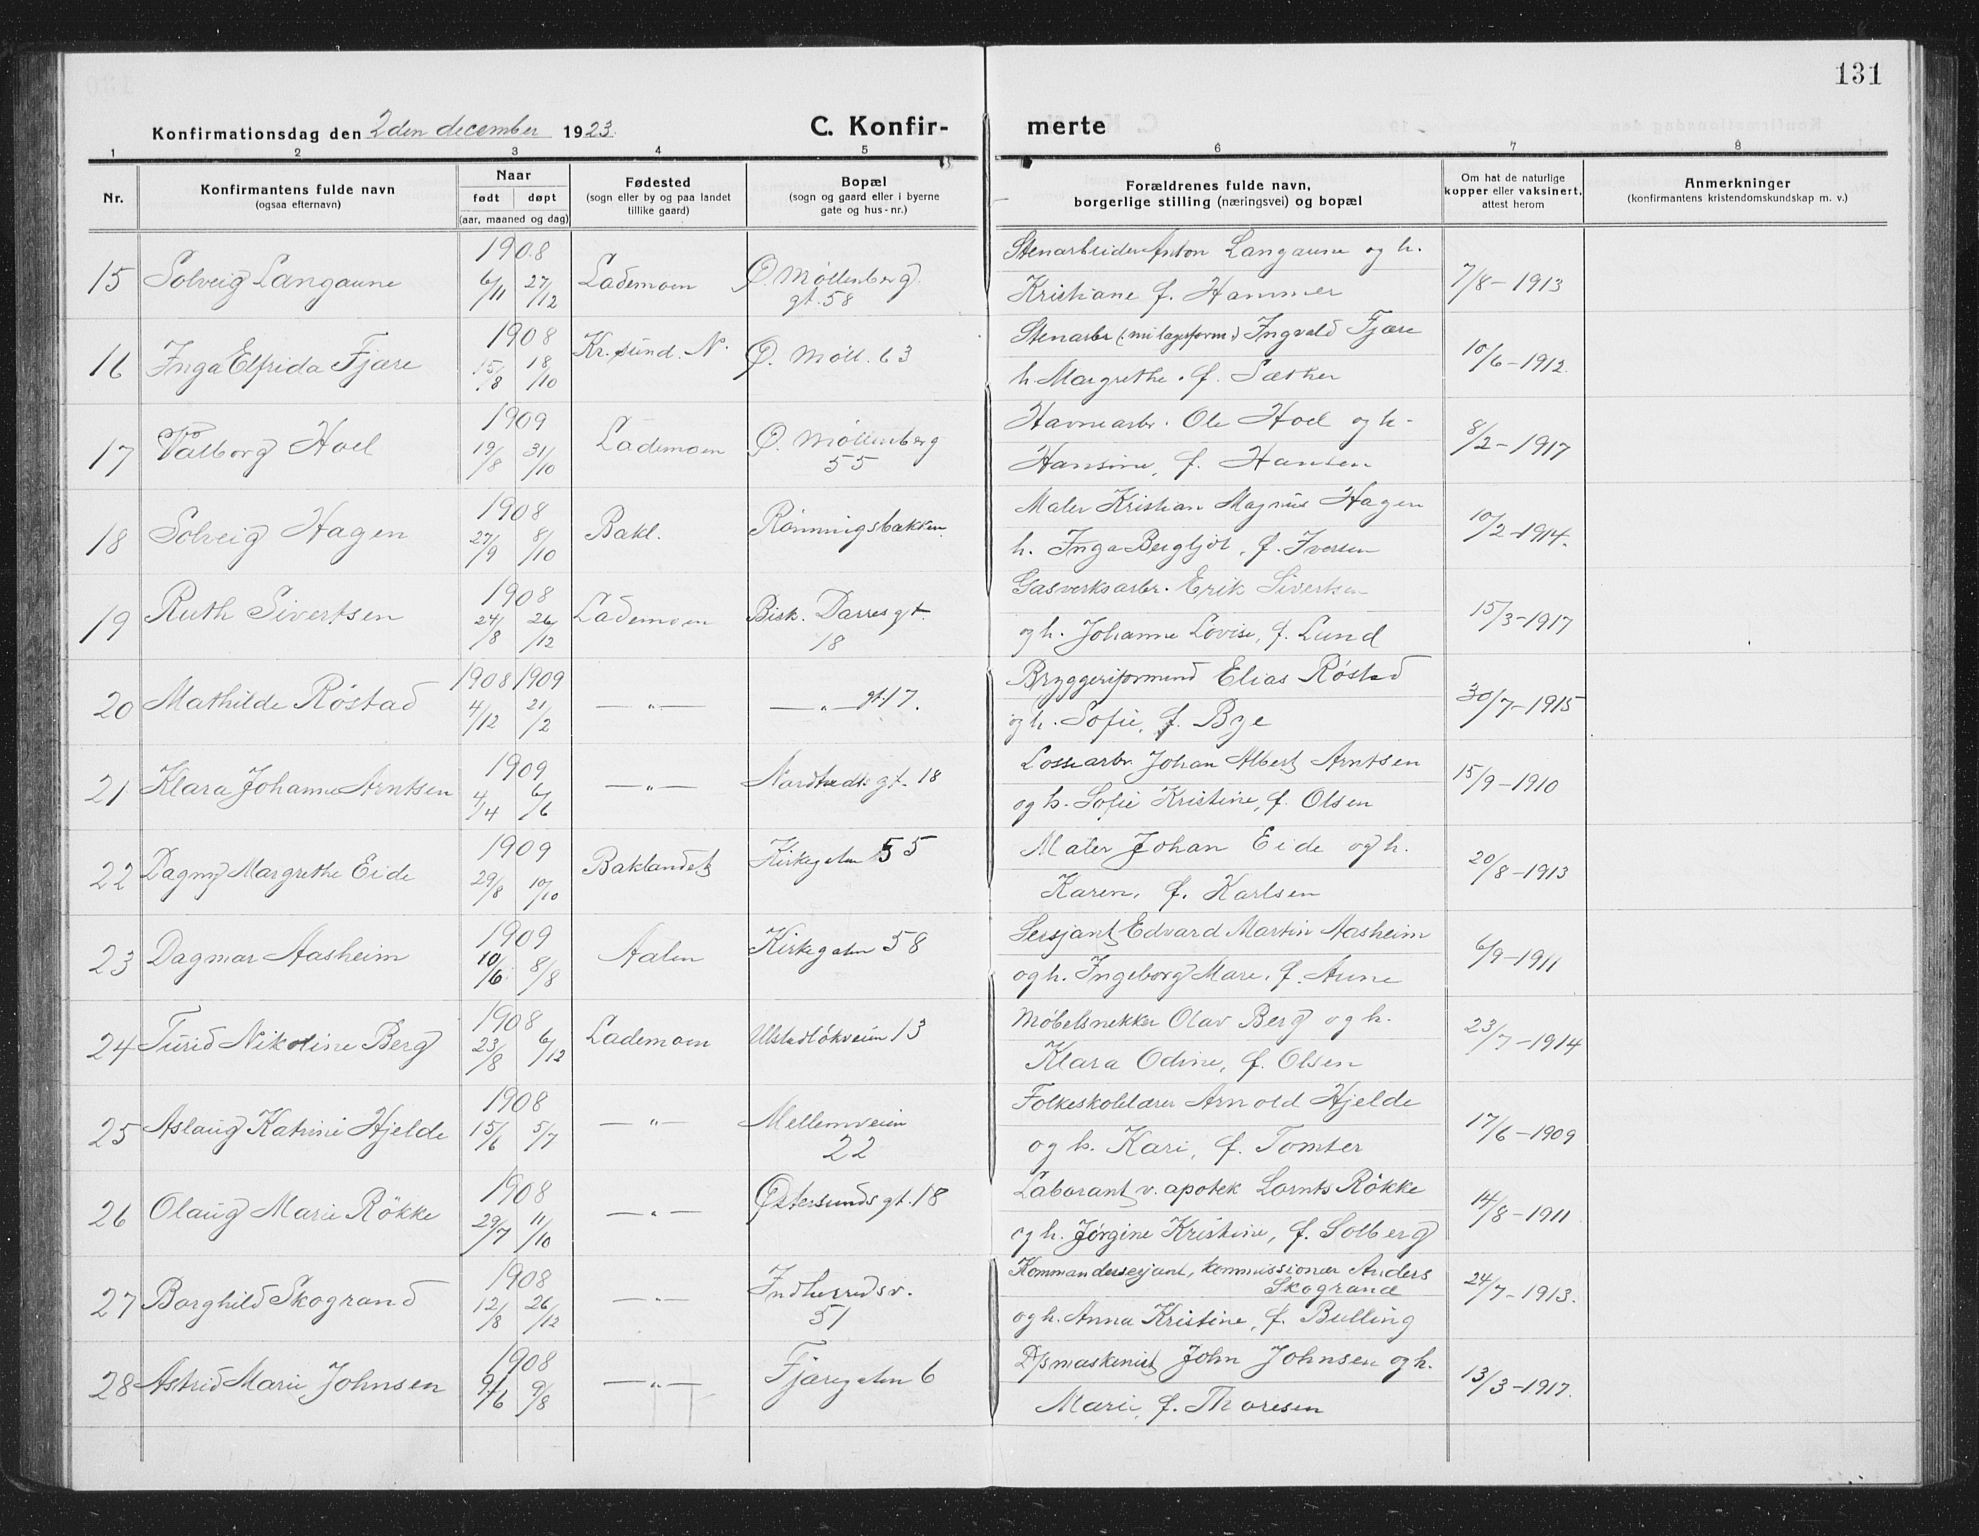 131
Konfirmationsdag den 2den december 1923. C. Konfir- merte
1 2 3 4 5 6 7 8
Nr. Konfirmantens fulde navn (ogsaa efternavn) Naar født døpt (aar, maaned og dag) Fødested (sogn eller by og paa landet tillike gaard) Bopæl (sogn og gaard eller i byerne gate og hus-nr.) Forældrenes fulde navn, borgerlige stilling (næringsvei) og bopæl Om hat de naturlige kopper eller vaksinert, attest herom Anmerkninger (konfirmantens kristendomskundskap m. v.)
1908 Stenarbeider Anton Langaune og h.
15 Solveig Langaune 6/11 27/12 Lademoen Ø. Møllenberg gt. 58 Kristiane f. Hammer 7/8-1913
1908 Stenarbr (nu lagerform) Ingvald Fjære
16 Inga Elfrida Fjære 15/8 18/10 Kr.sund. N. Ø. Møll. 63 h Margrethe. f. Sæther 10/6-1912.
1909 Havnearbr. Ole Hoel og h.
17 Valborg Hoel 19/8 31/10 Lademoen Ø. Møllenberg 55 Hansine, f. Hansen 8/2-1917
1908 Maler Kristian Magnus Hagen
18 Solveig Hagen 27/9 8/10 Bakl. Rønningsbakken. h. Inga Bergljot, f. Iversen 10/2-1914.
1908 Gasverksarbr. Erik Sivertsen
19 Ruth Sivertsen 24/8 26/12 Lademoen Bisk. Darres gt. 18 og h. Johanne Lovise, f. Lund 15/3-1917
1908 1909 Bryggeriformend Elias Røstad
20 Mathilde Røstad 4/12 21/2 —„— —„— gt 17. og h. Sofie, f. Bye 30/7-1915
1909 Lossearbr. Johan Albert Arntsen
21 Klara Johanne Arntsen 4/14 6/6 —„— gt. 18 og h. Sofie Kristine, f. Olsen 15/9-1910
1909 Maler Johan Eide og h.
22 Dagny Margrethe Eide 29/8 10/10 Baklandet Kirkegaten 55 Karen, f. Karlsen 20/8-1913
1909 Sersjant Edvard Martin Aasheim
23 Dagmar Aasheim 10/6 8/8 Aalen Kirkegaten 58 og h. Ingeborg Mare, f. Aune 6/9-1911
1908 Møbelsnekker Olav Berg og h.
24 Turid Nikoline Berg 23/8 6/12 Lademoen Ulstadløkveien 13 Klara Odine, f. Olsen 23/7-1914
1908 Folkeskolelærer Arnold Hjelde
25 Aslaug Katrine Hjelde 15/6 5/7 —„— Mellemveien 22 og h. Kari, f. Tomter 17/6-1909
1908 Laborant v. apotek Lornts Røkke
26 Olaug Marie Røkke 29/7 11/10 —„— Østersunds gt. 18 og h. Jørgine Kristine, f. Solberg 14/8-1911
1908 Kommandersersjant, kommissionær Anders Skogrand
27 Borghild Skogrand 12/8 26/12 —„— Indherredsv. 51 og h. Anna Kristine, f. Bulling 24/7-1913.
1908 D/s maskinist John Johnsen og h.
28 Astrid Marie Johnsen 9/6 9/8 —„— Fjæregaten 6 Marie, f. Thoresen 13/3-1917.